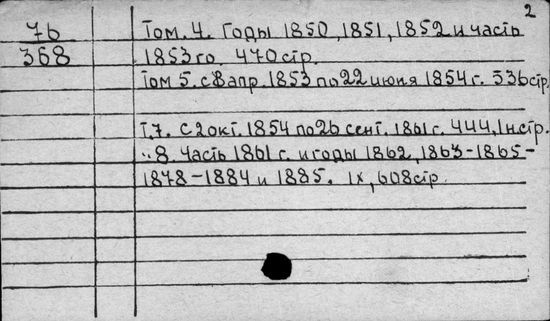 2
76 Том. 4. Годы 1850, 1851, 1852 и часть
368 1853 го. 470 стр.
Том 5. с 8 апр. 1853 по 22 июня 1854 г. 536 стр.
Т. 7. с 2 окт. 1854 по 26 сент. 1861 г. 444, 1 н стр.
" 8. Часть 1861 г. и годы 1862, 1863-1865-
1878-1884 и 1885. IX, 608 стр.